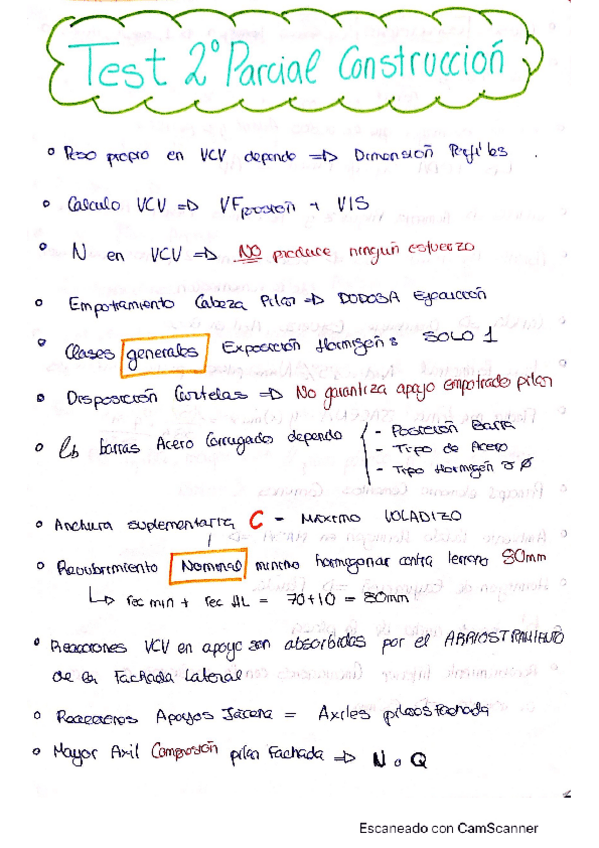 Test 2º Parcial Construcción
Peso propio en VCV depende => Dimensión Perfiles.
Calculo VCV => VF posición + VIS
N en VCV => NO produce ningún esfuerzo
Empotramiento Cabeza Pilar => DUDOSA Ejecución
Clases generales Exposición Hormigón: SOLO 1
Disposición Cartelas => No garantiza apoyo empotrado pilar
lb barras Acero Corrugado depende
- Posición Barra
- Tipo de Acero
- Tipo Hormigón y Ø
Anchura suplementaria C - MAXIMO VOLADIZO
Recubrimiento Nominal minimo hormigonar contra terreno 80mm
rec min + rec AL = 70+10 = 80mm
Reacciones VCV en apoyo son absorbidas por el ARRIOSTRAMIENTO
de la Fachada Lateral
Reacciones Apoyos Jácena = Axiles pilares Fachada
Mayor Axil Compresión pilar Fachada => N o Q
Escaneado con CamScanner